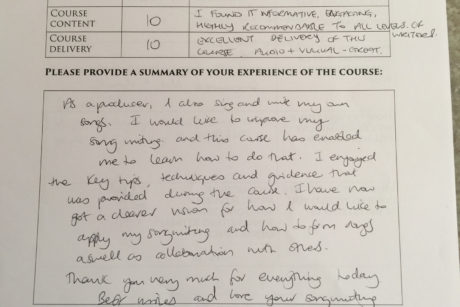 COURSE CONTENT 10 I FOUND IT INFORMATIVE, ENGAGING,
HIGHLY RECOMMENDABLE TO ALL LEVELS OF WRITERS.
COURSE DELIVERY 10 EXCELLENT DELIVERY OF THIS
COURSE. AUDIO + VISUAL - GREAT.
PLEASE PROVIDE A SUMMARY OF YOUR EXPERIENCE OF THE COURSE:
As a producer, I also sing and write my own
songs. I would like to improve my
song writing and this course has enabled
me to learn how to do that. I enjoyed
the key tips, techniques and guidance that
was provided during the course. I have now
got a clearer vision for how I would like to
apply my songwriting and how to form songs
aswell as collaboration with others.
Thank you very much for everything today
Best wishes and love your songwriting